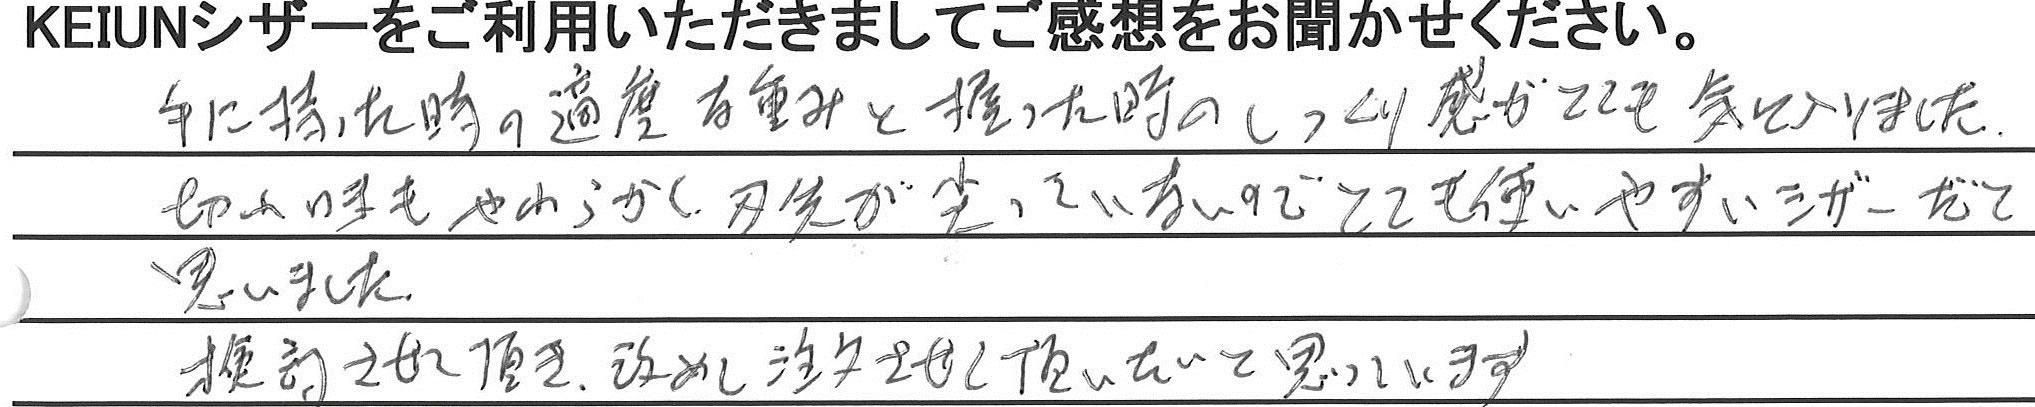 KEIUNシザーをご利用いただきましてご感想をお聞かせください。
手に持った時の適度な重みと握った時のしっくり感がとても気に入りました.
切れ味もやわらかく、刃先が尖っていないのでとても使いやすいシザーだと
思いました.
検討させて頂き、改めて注文させて頂いたいと思っています